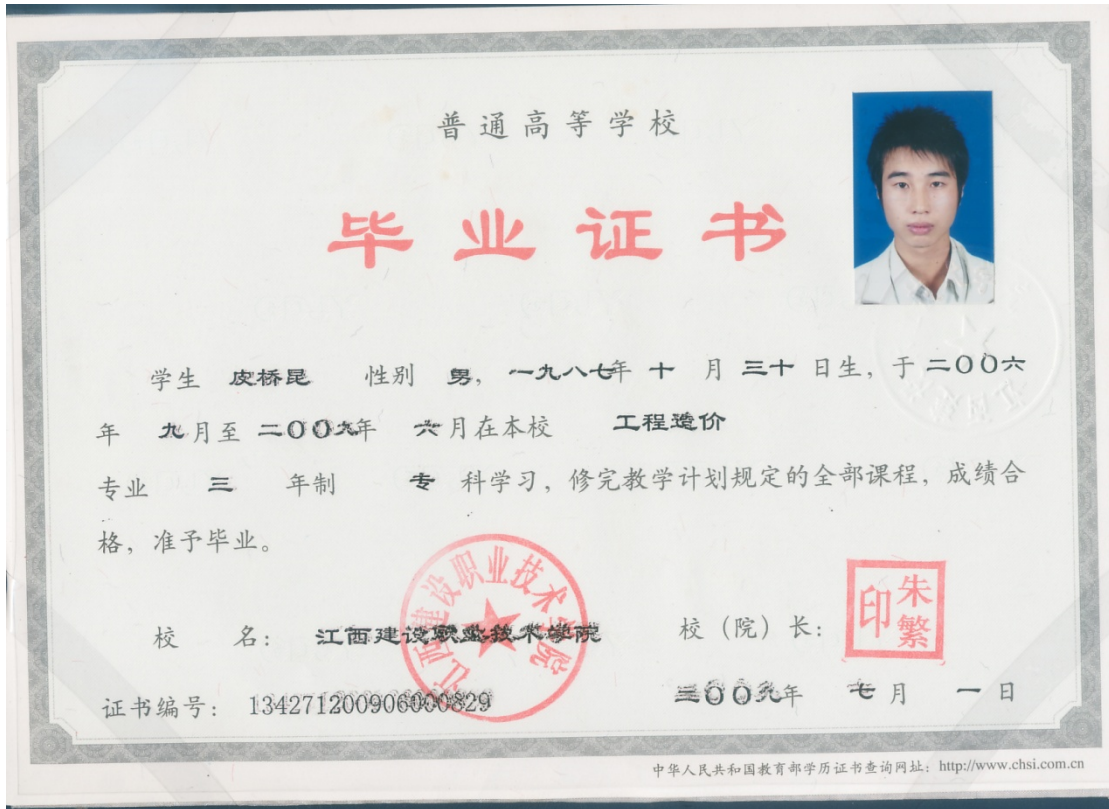 普通高等学校
毕业证书
学生 皮桥昆 性别 男，一九八七年 十 月 三十 日生，于 二〇〇六
年 九月至 二〇〇九年 六月在本校 工程造价
专业 三 年制 专 科学习，修完教学计划规定的全部课程，成绩合
格，准予毕业。
江西建设职业技术学院
校 名： 江西建设职业技术学院
校（院）长：
朱繁印
证书编号： 134271200906000829
二〇〇九年 七月 一日
中华人民共和国教育部学历证书查询网址：http://www.chsi.com.cn